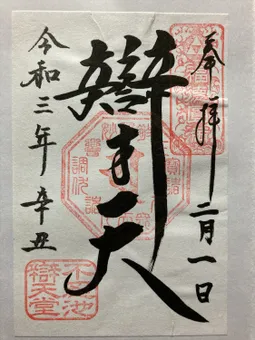 奉拝
二月一日
辯才天
令和三年 辛丑
不忍池
辯天堂